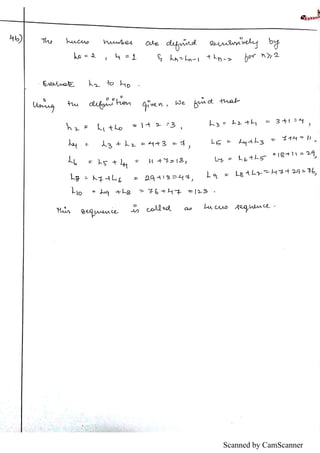 4b) The Lucas numbers are defined recursively by
L₀ = 2 , L₁ = 1 & Lₙ = Lₙ₋₁ + Lₙ₋₂ for n≥2
Evaluate L₂ to L₁₀.
Using the definition given, we find that
L₂ = L₁+L₀ = 1+2 = 3, L₃ = L₂+L₁ = 3+1 = 4,
L₄ = L₃+L₂ = 4+3 = 7, L₅ = L₄+L₃ = 7+4 = 11,
L₆ = L₅+L₄ = 11+7=18, L₇ = L₆+L₅ = 18+11 = 29,
L₈ = L₇+L₆ = 29+18=47, L₉ = L₈+L₇ = 47+29=76,
L₁₀ = L₉+L₈ = 76+47 = 123.
This sequence is called as Lucas sequence.
Scanned by CamScanner